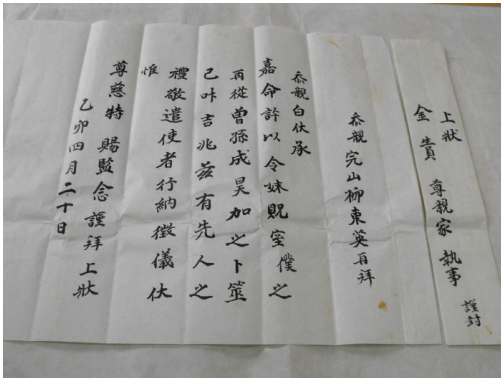 上狀
金 貴 尊親家 執事 謹封
忝親完山柳東英再拜
忝親白伏承
嘉命許以令妹貺室僕之
再從曾孫成昊加之卜筮
己叶吉兆玆有先人之
禮敬遣使者行納徵儀伏
惟
尊慈特 賜監念謹拜上狀
乙卯四月二十日